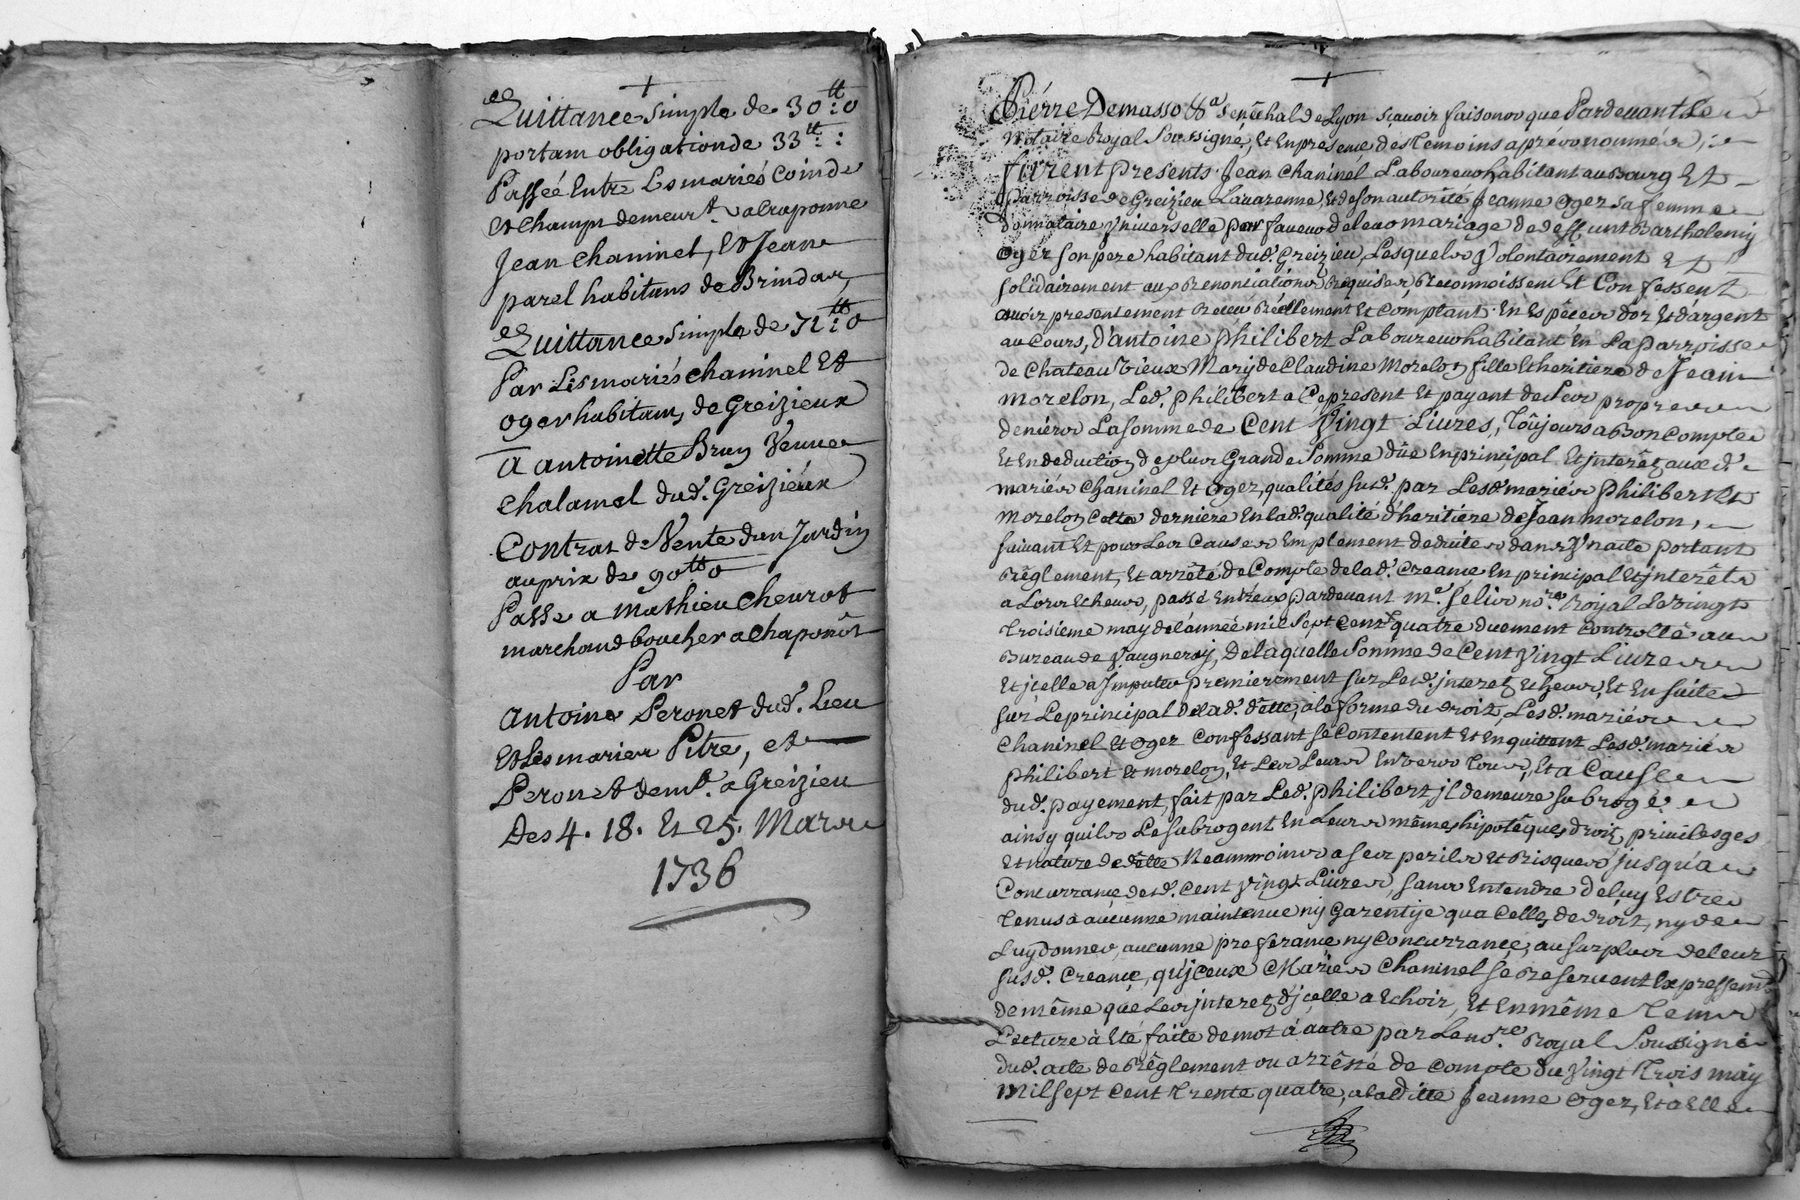 Quittance simple de 30tt:0
portam obligation de 33tt::
Passée Entre Les mariés Coinde
et champs demeurt. a Craponne
Jean chaninel, Et Jean
parel habitans de Brindas,
Quittance simple de 71tt:0
Par Les mariés chaninel Et
oger habitans, de Greizieux
A antoinette Brun Veuve
chalamel dud. Greizieux
Contrat de Vente d'un Jardin
au prix de 90tt0
Passé a Mathieu Chevrot
marchand boucher a chaponôt
Par
antoine Peronet dud. Lieu
Et Les maries Pitre, et
Peronet demt. a Greizieu
Des 4. 18. Et 25. Mars
1736
Piérre Demasso Senêchal de Lyon sçavoir faisons que Pardevant Le
Notaire Royal Soussigné, Et En presence des Temoins aprés nommés, :
furent presents Jean Chaninel Laboureur habitant au Bourg Et
parroisse de Greizieu Lavarenne, Et de son autorité Jeanne Oger sa femme
donnataire Vniverselle par faveur de leur mariage de deffunt Barthelemy
Oger son pere habitant dud. Greizieu, Lesquels Volontairement Et
solidairement aux Renonciations Requises, Reconnoissent Et Confessent
avoir presentement Receu Réellement Et Comptant En Espêces d'or Et d'argent
au Cours, D'antoine Philibert Laboureur habitant En La parroisse
de Chateau Vieux Mary de Claudine Morelon fille Et heritiere de Jean
morelon, Led. Philibert a Ce present Et payant de Ses propres
deniérs La somme de Cent Vingt Livres, Toûjours a Bon Compte
Et En deduction de plus Grande Somme düe En principal Et interêt, aux d.
mariés Chaninel Et Oger, qualités susd. par Lesd. mariés Philibert Et
Morelon, Cette derniere En lad. qualité d'heritiere de Jean morelon,
suivant Et pour Les Causes Emplement deduites dans Vn acte portant
Règlement, Et arrêté de Compte de lad. Creance En principal Et interêts
a Lors Echeus, passé Entreux pardevant Me. felix nore. Royal Le Vingt
Troisieme may de lannée mil sept Cent quatre duement Controllé au
Bureau de Vaugneray, De laquelle Somme de Cent Vingt Livres
Et icelle a Imputer premierement sur Lesd. interets Echeus, Et En suite
sur Le principal de lad. dette, a la forme du droit, Lesd. mariés
Chaninel Et Oger Confessant se Contentent Et En quittent Lesd. mariés
philibert Et morelon, Et Les Leurs Envers Tous, Et a Cause
dud. payement, fait par Led. Philibert, il demeure subrogé
ainsy quils Le subrogent En Leurs mêmes hipotêques, droit, privileges
Et nature de dette Neammoins a ses perils Et Risques, jusqu'a
Concurrance desd. Cent Vingt Livres, sans Entendre de luy Estre
Tenus a aucunne maintenue ny Garentije qua Celle de droit, ny de
Luy donner, aucunne preferance ny Concurrance, au surplus de leur
susd. Creance, qu'iceux Mariés Chaninel se Reservent Expressement
de même que Les interets d'icelle a Echoir, Et En même Tems
Lecture à Eté faite de mot à autre par Le nore. Royal Soussigné
dud. acte de Règlement ou arrêté de Compte du Vingt Trois may
mil sept Cent Trente quatre, a la ditte Jeanne Oger, Et a Elle